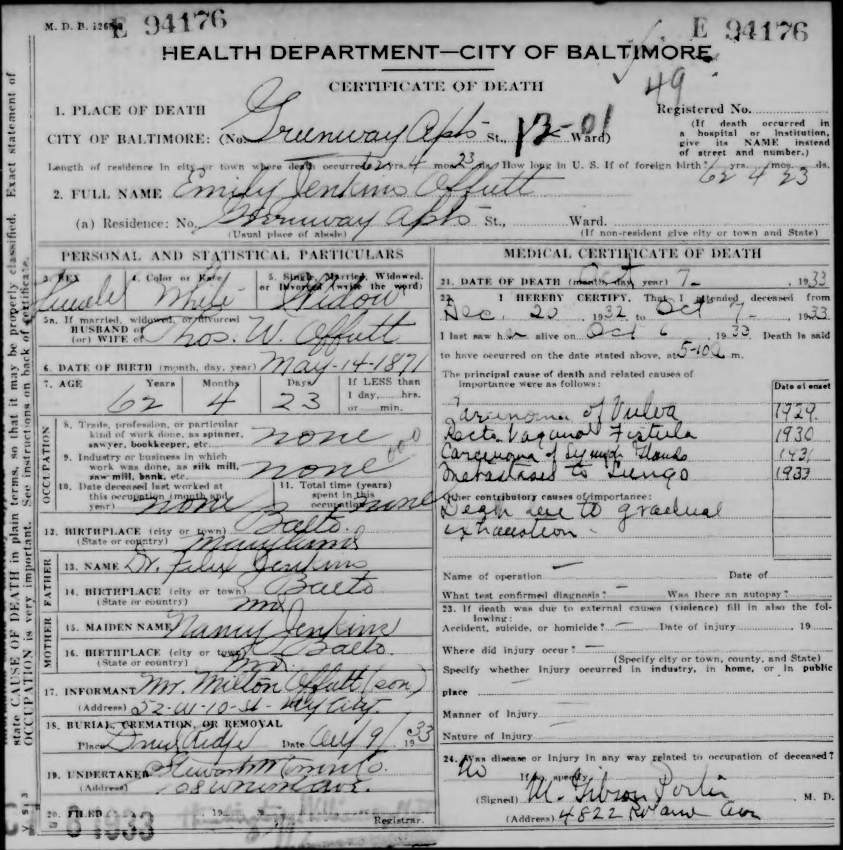 M. D. B. 12
E 94176
E 94176
HEALTH DEPARTMENT—CITY OF BALTIMORE
49
CERTIFICATE OF DEATH
1. PLACE OF DEATH
Registered No.
CITY OF BALTIMORE: (No. Greenway Apts St., 12-01 Ward)
(If death occurred in a hospital or institution, give its NAME instead of street and number.)
Length of residence in city or town where death occurred 62 yrs. 4 mos. 23 ds. How long in U. S. If of foreign birth? 62 yrs. 4 mos. 23 ds.
2. FULL NAME Emily Jenkins Offutt
(a) Residence: No. Greenway Apts St., Ward.
(Usual place of abode) (If non-resident give city or town and State)
PERSONAL AND STATISTICAL PARTICULARS
3. SEX Female
4. Color or Race White
5. Single, Married, Widowed, or Divorced (write the word) Widow
5a. If married, widowed, or divorced
HUSBAND of
(or) WIFE of Thos. W. Offutt
6. DATE OF BIRTH (month, day, year) May-14-1871
7. AGE Years Months Days If LESS than
1 day, hrs.
or min.
62 4 23
OCCUPATION
8. Trade, profession, or particular
kind of work done, as spinner,
sawyer, bookkeeper, etc. none
000
9. Industry or business in which
work was done, as silk mill,
saw mill, bank, etc. none
10. Date deceased last worked at
this occupation (month and
year) none
11. Total time (years)
spent in this
occupation none
12. BIRTHPLACE (city or town) Balto.
(State or country) Maryland
FATHER
13. NAME Dr. Felix Jenkins
14. BIRTHPLACE (city or town) Balto
(State or country) Md
MOTHER
15. MAIDEN NAME Nancy Jenkins
16. BIRTHPLACE (city or town) Balto.
(State or country) Md.
17. INFORMANT Mr. Milton Offutt (son)
(Address) 52-W-10-St- NY City
18. BURIAL, CREMATION, OR REMOVAL
Place Druid Ridge Date Oct 9/ 1933
19. UNDERTAKER Stewart & Co.
(Address)
20. FILED 19 Registrar.
8 1933
Huntington Williams
MEDICAL CERTIFICATE OF DEATH
21. DATE OF DEATH (month, day, year) Oct 7- , 1933
22. I HEREBY CERTIFY, That I attended deceased from
Dec. 20 , 1932 to Oct 7- , 1933
I last saw her alive on Oct 6 , 1933 Death is said
to have occurred on the date stated above, at 5-10 m.
The principal cause of death and related causes of
importance were as follows:
Date of onset
Carcinoma of Vulva 1929
Recto Vaginal Fistula 1930
Carcinoma of Lymph Glands 1931
Metastases to Lungs 1933
Other contributory causes of importance:
Death due to gradual
exhaustion -
Name of operation — Date of
What test confirmed diagnosis? — Was there an autopsy?
23. If death was due to external causes (violence) fill in also the following:
Accident, suicide, or homicide? — Date of injury , 19
Where did injury occur? —
(Specify city or town, county, and State)
Specify whether injury occurred in industry, in home, or in public
place
Manner of Injury
Nature of Injury
24. Was disease or injury in any way related to occupation of deceased?
No If so, specify
(Signed) M. Gibson Porter M. D.
(Address) 4822 Roland Ave
state CAUSE OF DEATH in plain terms, so that it may be properly classified. Exact statement of
OCCUPATION is very important. See instructions on back of certificate.